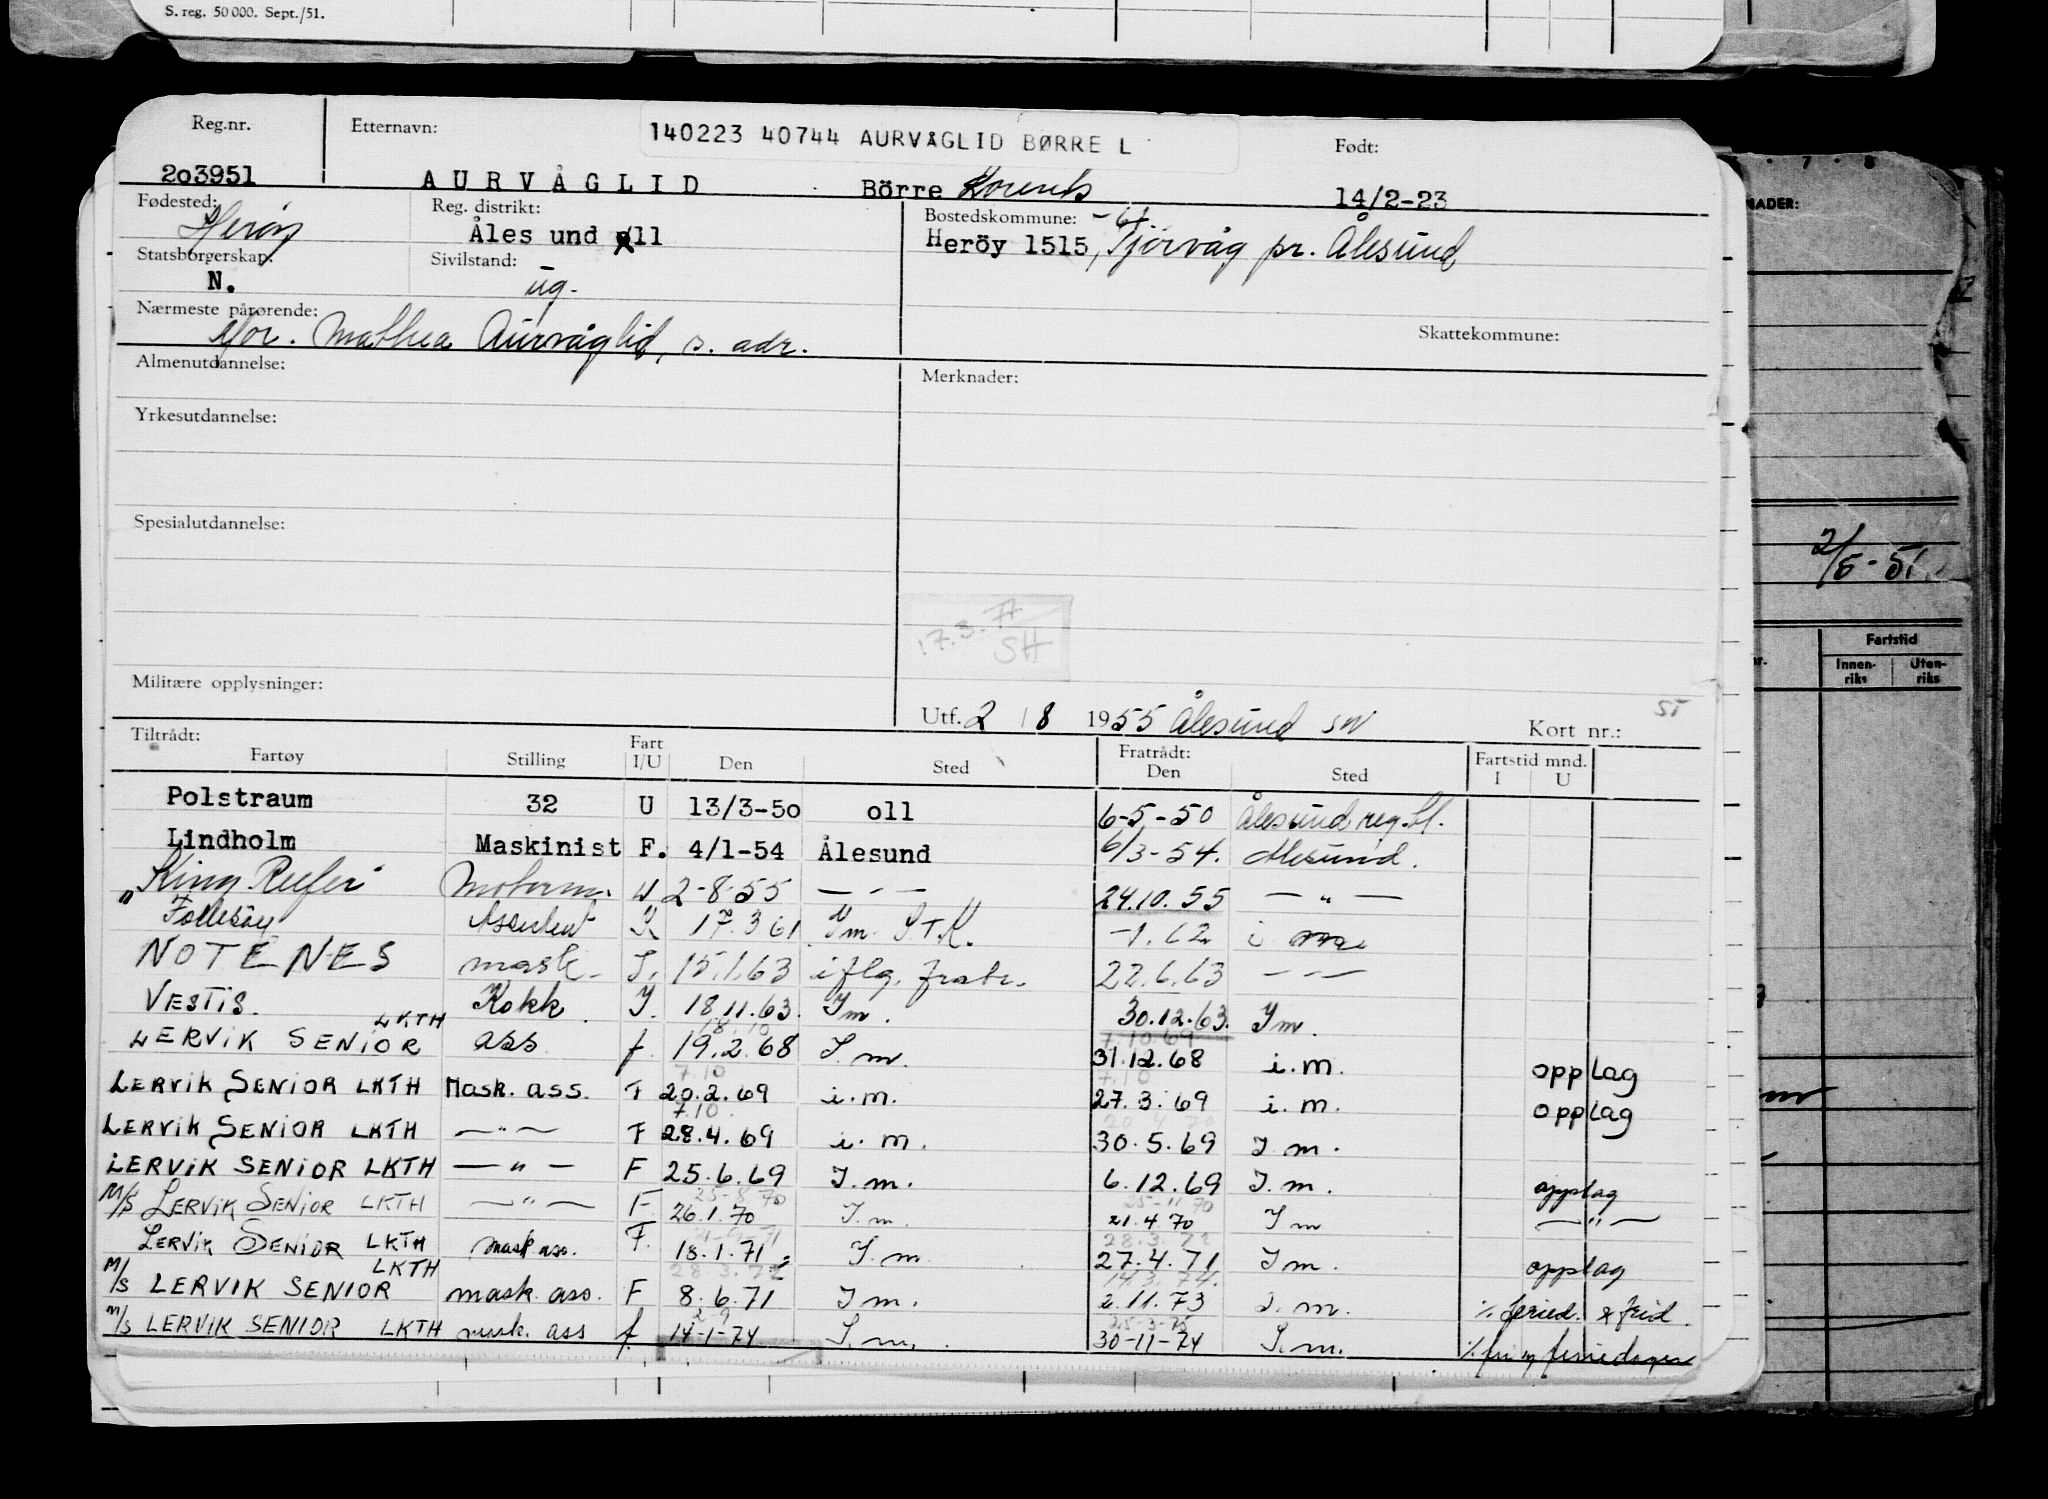 S. reg. 50 000. Sept./51.
Reg.nr. Etternavn: 140223 40744 AURVÅGLID BØRRE L Født:
203951 AURVÅGLID Börre 14/2-23
Fødested: Herøy Reg. distrikt: Bostedskommune: -61
Åles und oll Heröy 1515, Tjörvåg pr. Ålesund
Statsborgerskap: Sivilstand:
N. ug.
Nærmeste pårørende:
Mor. Mathea Aurvåglid, s. adr. Skattekommune:
Almenutdannelse: Merknader:
Yrkesutdannelse:
Spesialutdannelse:
17.3.77
SH
Militære opplysninger:
Utf. 2/8 1955 Ålesund SW Kort nr.:
ST
Tiltrådt: Fratrådt:
Fartøy Stilling Fart I/U Den Sted Den Sted Fartstid mnd. I U
Polstraum 32 U 13/3-50 oll 6-5-50 Ålesund reg.bl.
Lindholm Maskinist F. 4/1-54 Ålesund 6/3-54. Ålesund.
" King Reefer Motorm. U 2-8-55 — " — 24.10.55 — " —
Assistent K 17.3 61 -1.62 i
NOTENES mask. I. 15.1.63 i flg. fratr. 22.6.63 — " —
VESTIS. Kokk I. 18.11.63. Im. 30.12.63. Im.
18.10 7.10.69
LERVIK SENIOR LKTH ass f. 19.2.68 I m. 31.12.68 i.m. opplag
7.10 7.10
LERVIK SENIOR LKTH Mask. ass. F 20.2.69 i.m. 27.3.69 i.m. opplag
7.10.
LERVIK SENIOR LKTH — " — F 28.4.69 i.m. 30.5.69 I m.
LERVIK SENIOR LKTH — " — F 25.6.69 I.m. 6.12.69 I.m. opplag
25-8-70 25-11-70
M/S LERVIK SENIOR LKTH — " — F 26.1.70 I.m. 21.4 70 I m — " —
28.3.72
LERVIK SENIOR LKTH mask ass. F. 18.1.71 I.m 27.4.71 I m. opplag
28.3.72 14.3.74.
M/S LERVIK SENIOR LKTH mask. ass. F 8.6.71 I m. 2.11.73 I.m. % feried. & frid.
25-3-75
M/S LERVIK SENIOR LKTH mask. ass f. 14-1-74 I.m. 30-11-74 I.m. % fri og feriedager
7 · 8
2/5-51.
Fartstid
Innenriks Utenriks